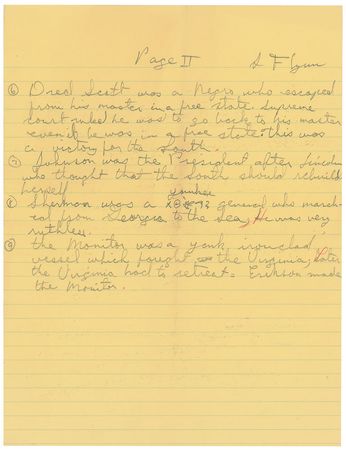 Page II
S Flynn
⑥ Dred Scott was a Negro who escaped
from his master in a free state. Supreme
court ruled he was to go back to his master
even if he was in a free state this was
a victory for the South.
⑦ Johnson was the President after Lincoln
who thought that the south should rebuild
herself
yankee
⑧ Sherman was a general who march-
ed from Georgia to the sea, He was very
ruthless.
⑨ the Monitor was a yank ironclad
vessel which fought the Virginia, Later
the Virginia had to retreat. Erikson made
the Monitor.